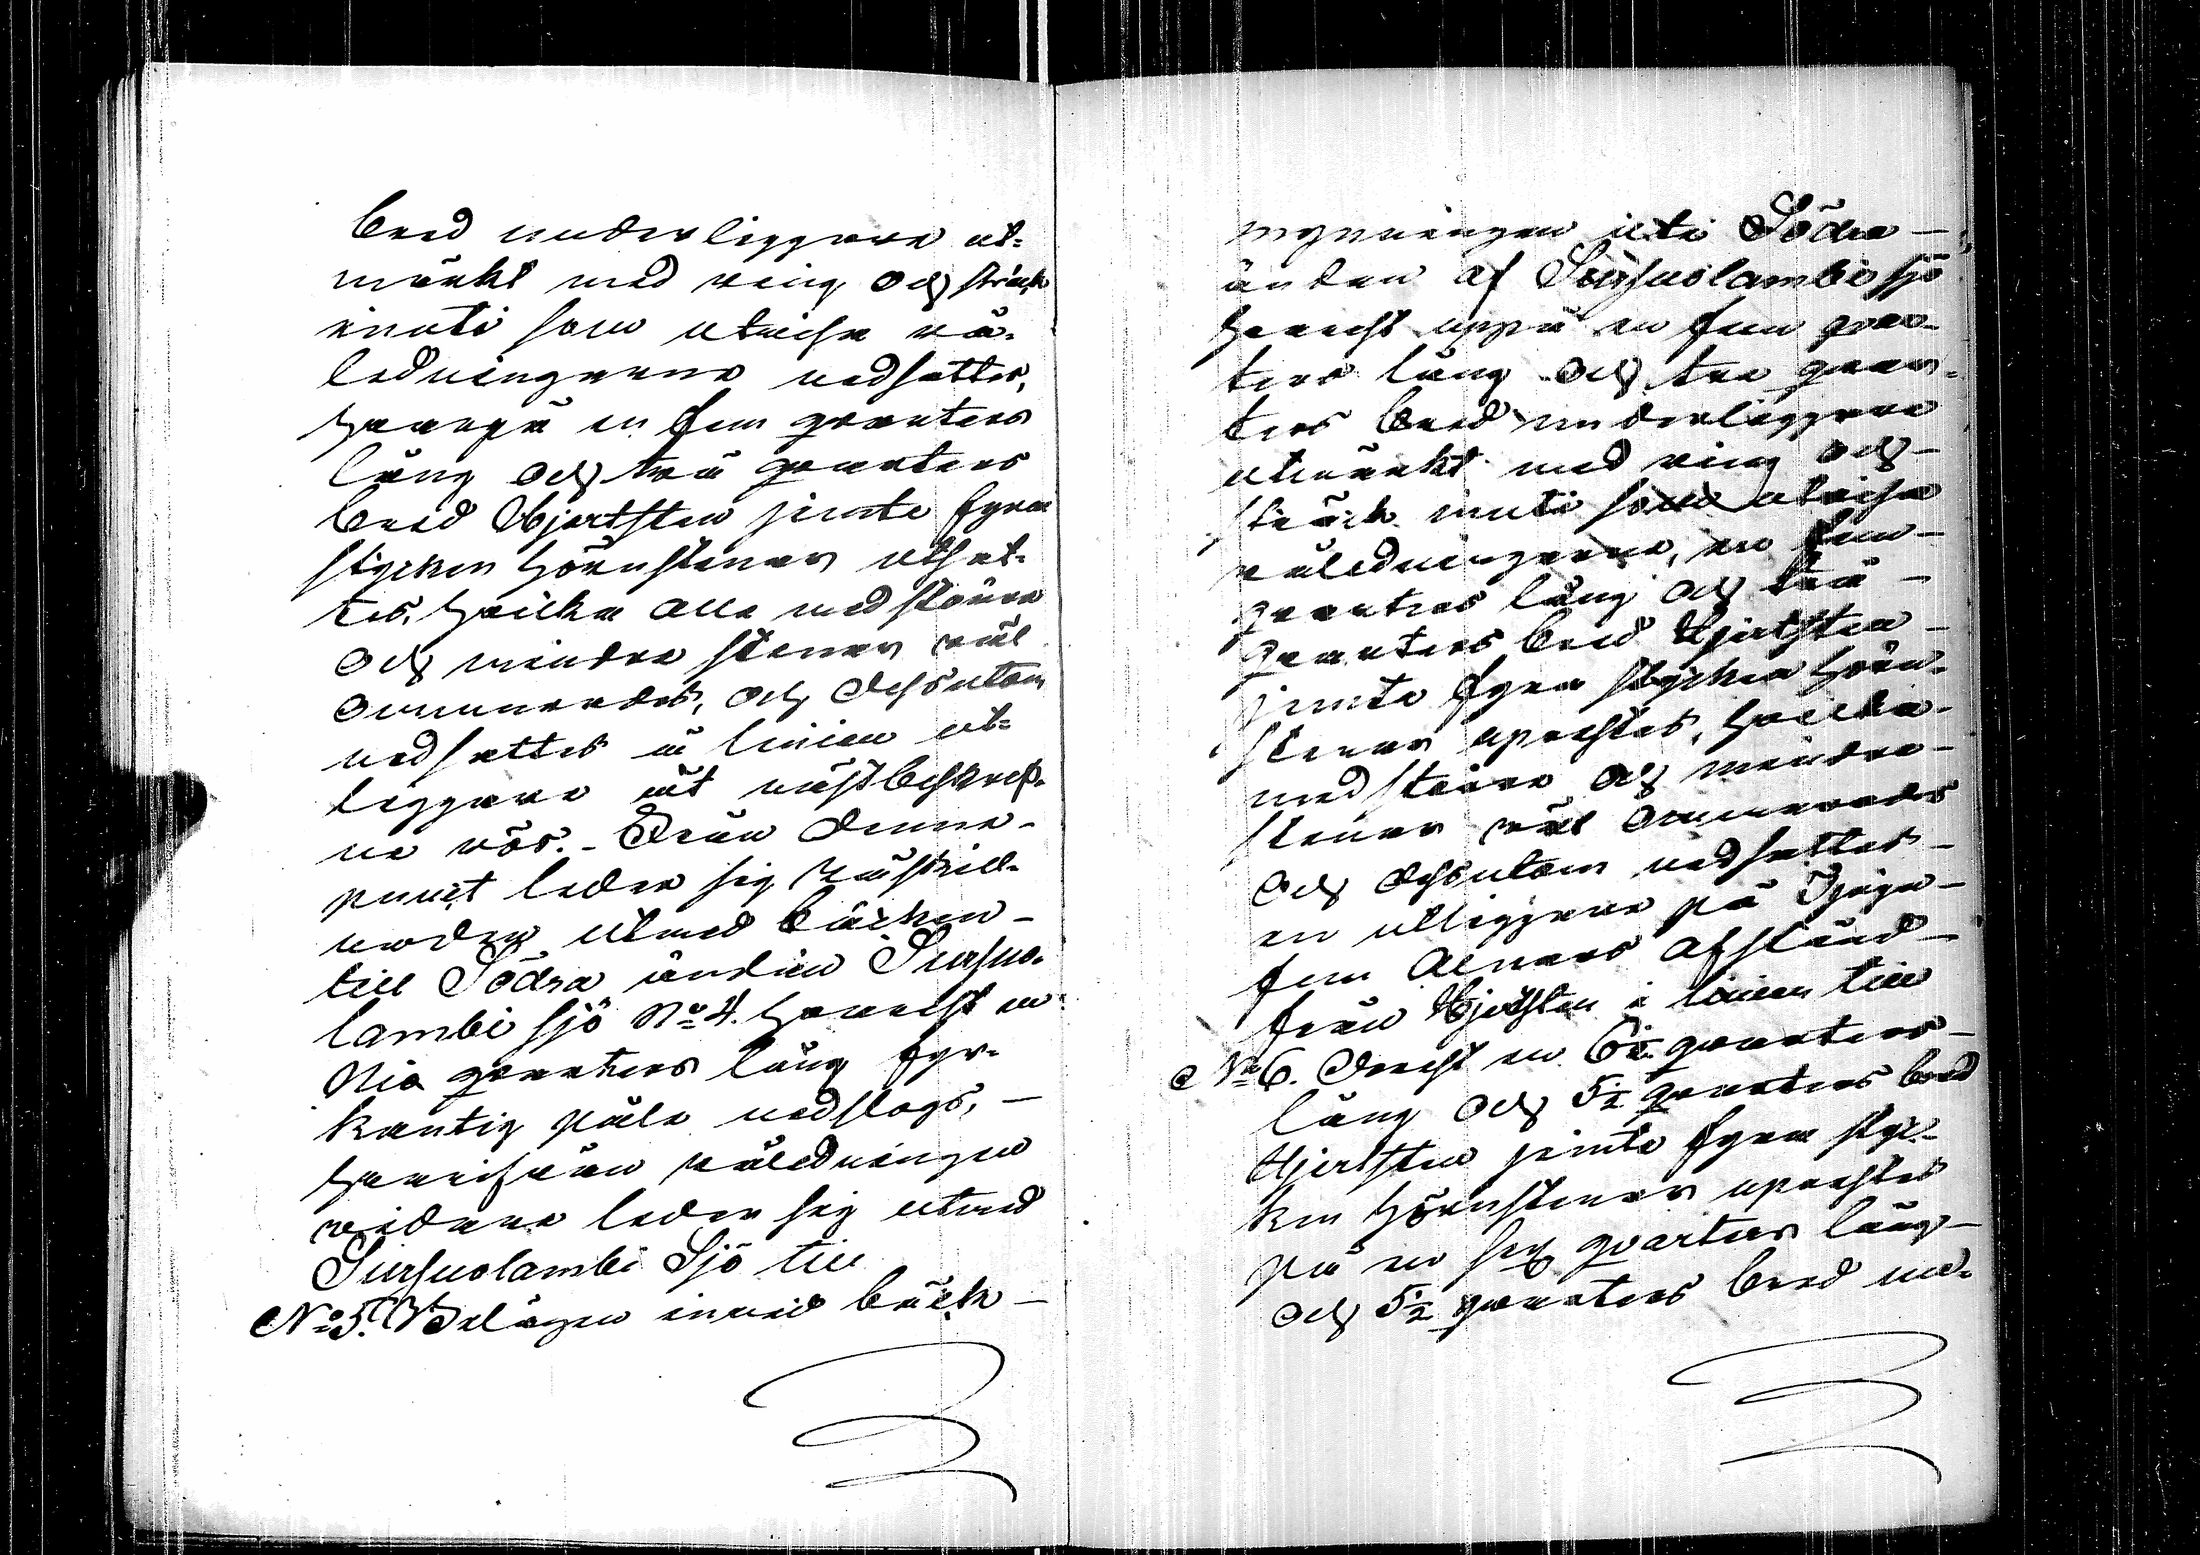 bred underliggare ut-
märkt med ring och sträck
inuti som utwisa rå-
ledningarne nedsattes,
hwarpå en fem qwarters
lång och två qwarters
bred Hjertsten jemte fyra
stycken hörnstenar utsat-
tes, hwilka alla med större
och mindre stenar wäl
ommurades, och dessutom
nedsattes å linien ut-
liggare åt nästbeskref-
ne rös. - Från denna
punct leder sig råskill-
naden utmed bäcken
till Södra ändan Sursuo-
lambi sjö No 4. hwarest en
Nio qwarters lång fyr-
kantig påle nedslogs, -
hwarifrån råledningen
widare leder sig utmed
Sursuolambi Sjö till
No 5. Belägen inwid bäck-
mynningen uti Södra -
ändan af Sursuolambi sjö
hwarest uppå en fem qwar-
ters lång och tre qwar-
ters bred underliggare
utmärkt med ring och -
sträck inuti som utwisa
råledningarne, en fem -
qwarters lång och två -
qwarters bred Hjertsten -
jemte fyra stycken hörn-
stenar uprestes, hwilka -
med större och mindre -
stenar wäl ommurades
och dessutom nedsattes -
en utliggare på Tjugu -
fem Alnars afstånd -
från Hjertsten i linien till
No 6. Derest en 6½ qwarters -
lång och 5½ qwarters bred
Hjertsten jemte fyra styc-
ken hörnstenar uprestes
på en sex qwarters lång -
och 5½ qwarters bred un-